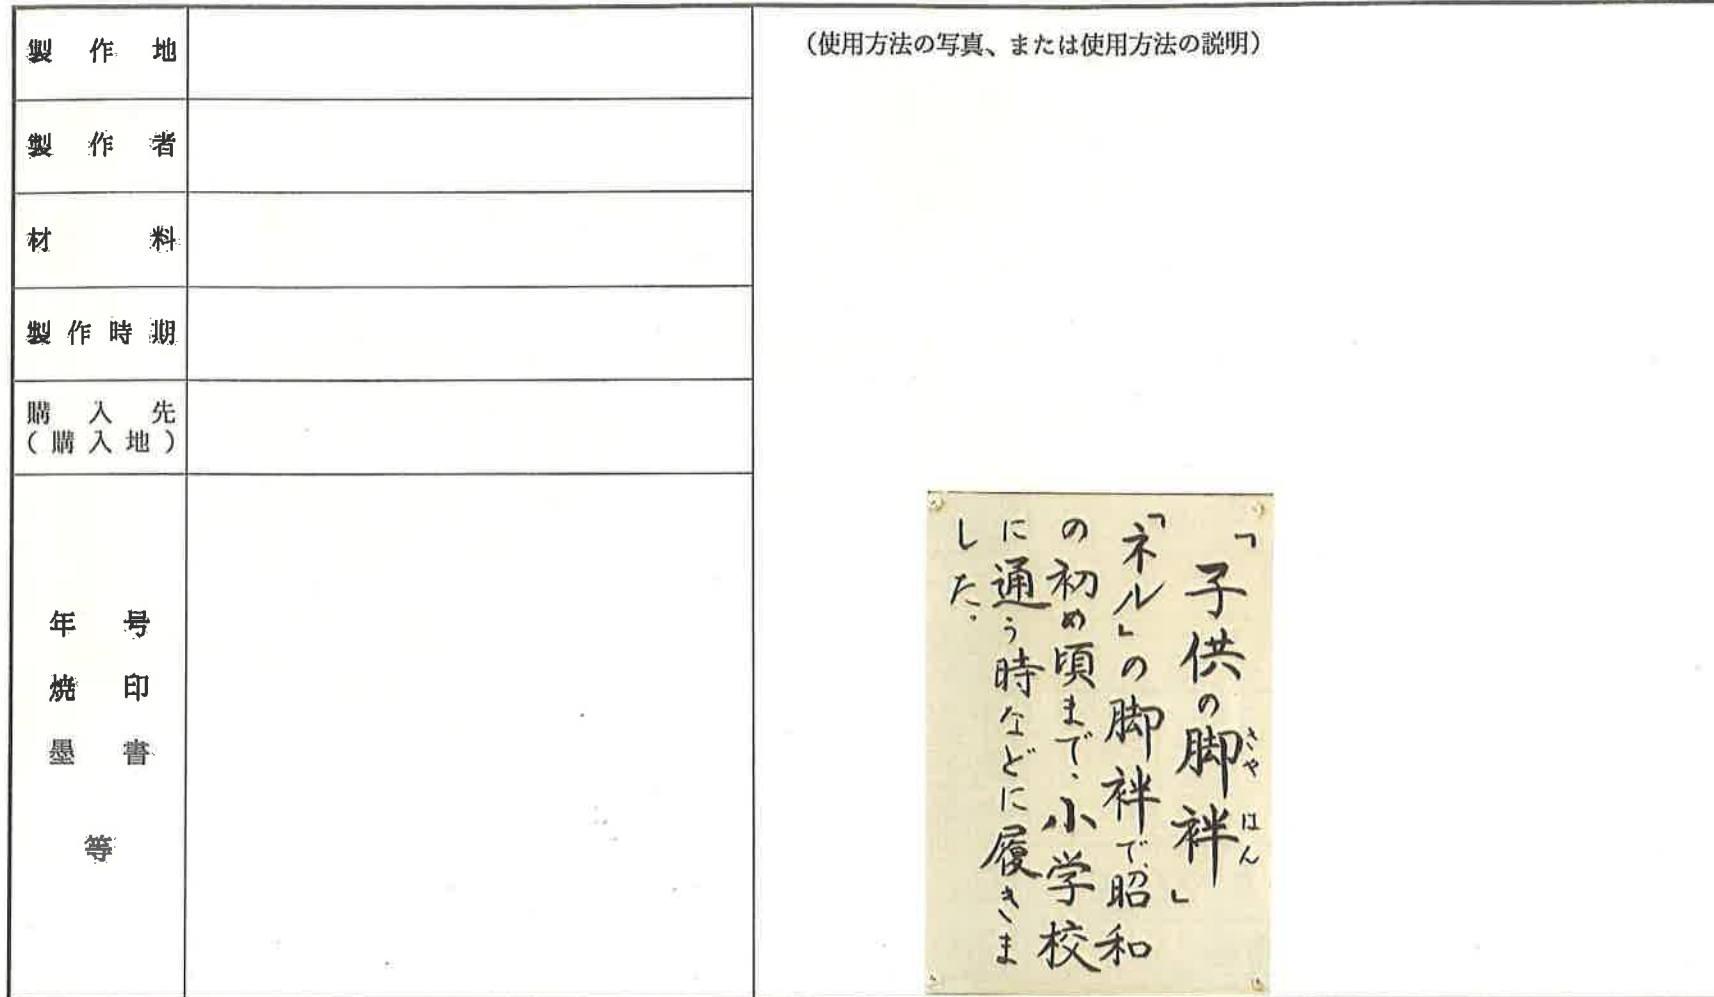 製作地
製作者
材料
製作時期
購入先
(購入地)
年号
焼印
墨書
等
(使用方法の写真、または使用方法の説明)
「子供の脚袢」
きゃはん
「ネル」の脚袢で、昭和
の初め頃まで、小学校
に通う時などに履きま
した。